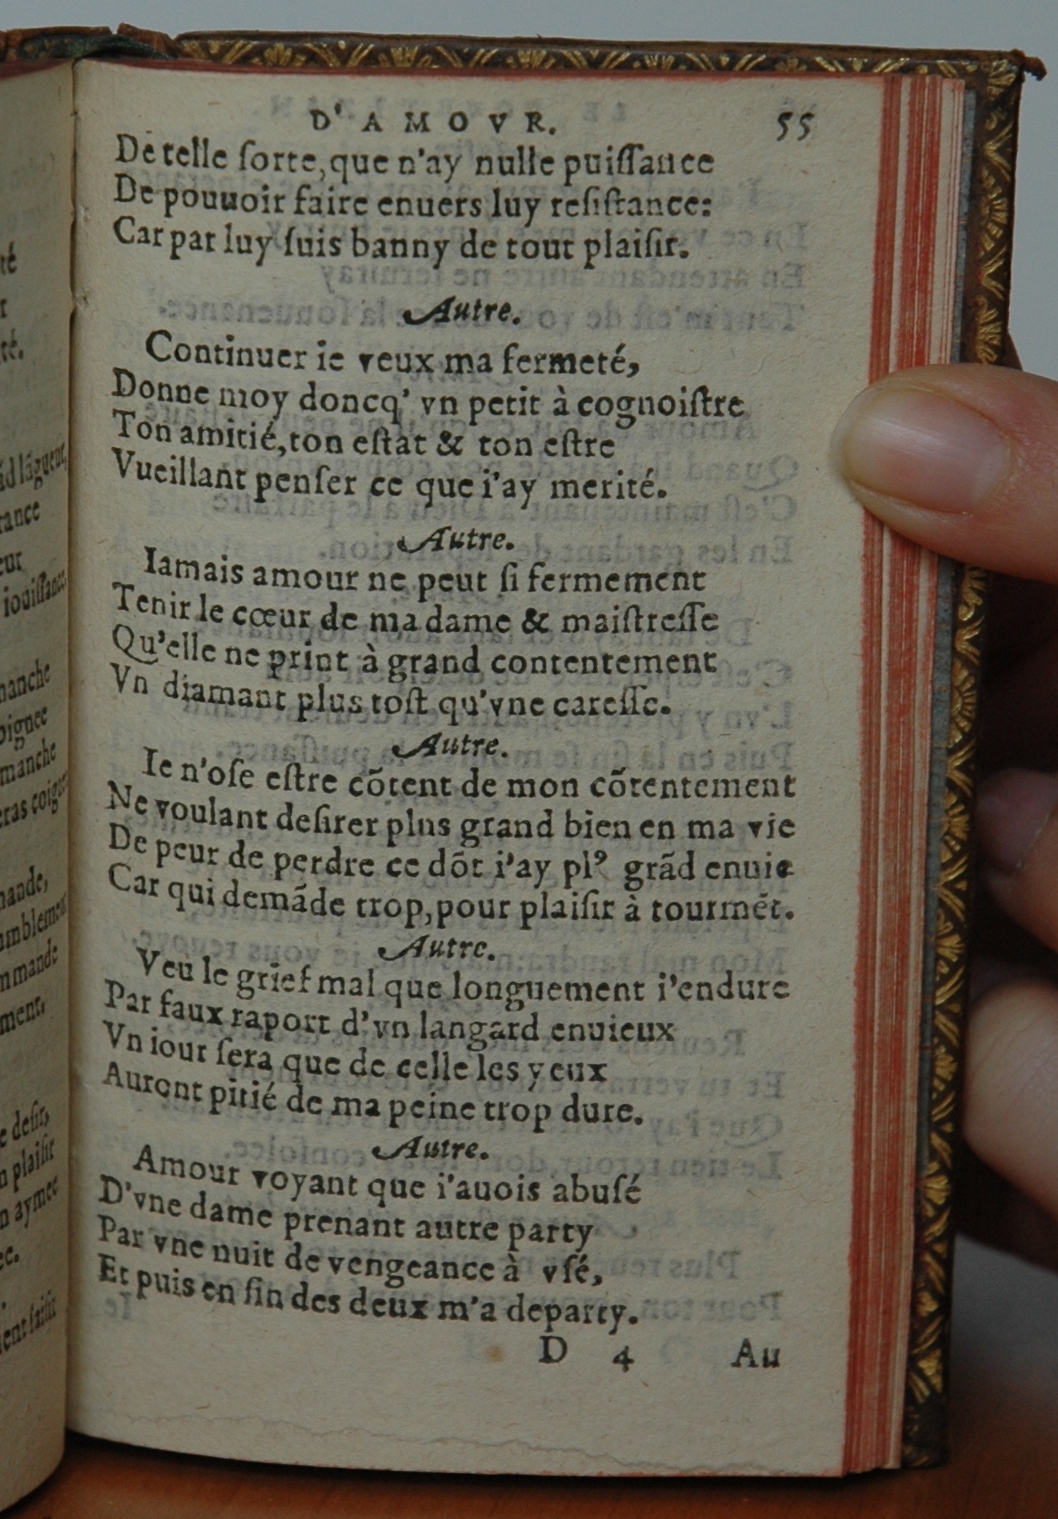 D' A M O V R. 55
De telle ſorte, que n'ay nulle puiſſance
De pouuoir faire enuers luy reſiſtance:
Car par luy ſuis banny de tout plaiſir.
Autre.
Continuer ie veux ma fermeté,
Donne moy doncq' vn petit à cognoiſtre
Ton amitié, ton eſtat & ton eſtre
Vueillant penſer ce que i'ay merité.
Autre.
Iamais amour ne peut ſi fermement
Tenir le cœur de ma dame & maiſtreſſe
Qu'elle ne print à grand contentement
Vn diamant plus toſt qu'vne careſſe.
Autre.
Ie n'oſe eſtre cõtent de mon cõtentement
Ne voulant deſirer plus grand bien en ma vie
De peur de perdre ce dõt i'ay plꝰ grãd enuie
Car qui demãde trop, pour plaiſir à tourmẽt.
Autre.
Veu le grief mal que longuement i'endure
Par faux raport d'vn langard enuieux
Vn iour ſera que de celle les yeux
Auront pitié de ma peine trop dure.
Autre.
Amour voyant que i'auois abuſé
D'vne dame prenant autre party
Par vne nuit de vengeance à vſé,
Et puis en fin des deux m'a departy.
D 4 Au